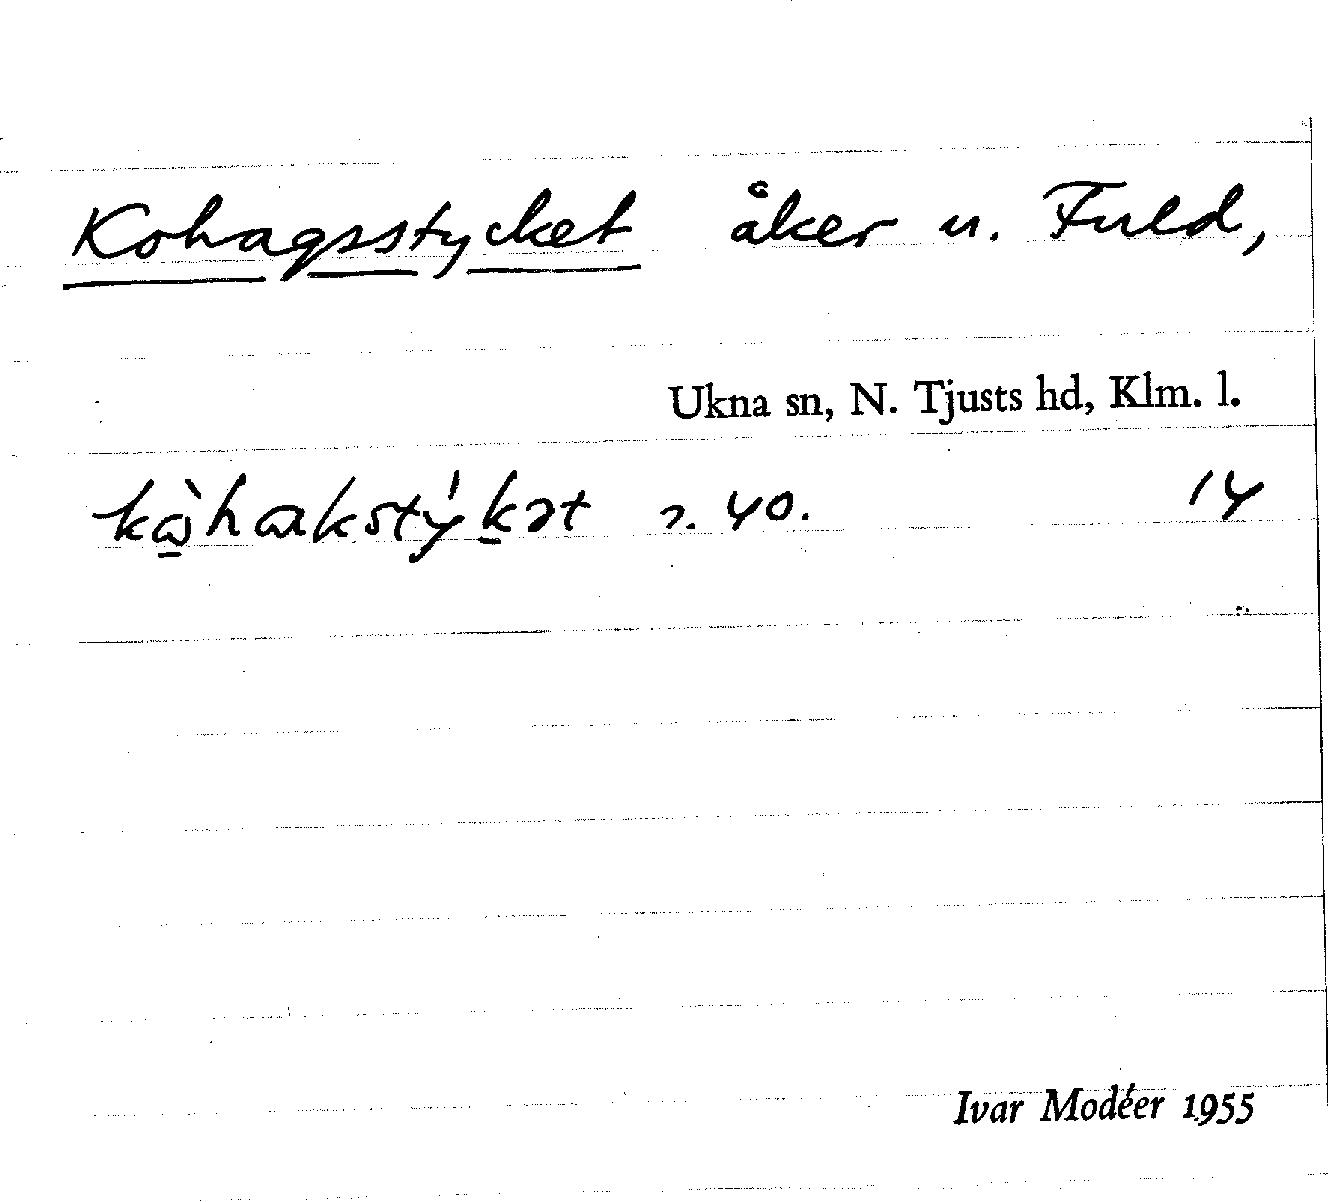 Kohagsstycket åker u. Fuld,
Ukna sn, N. Tjusts hd, Klm. l.
kòhakstýkət 2. 40. 14
Ivar Modéer 1955